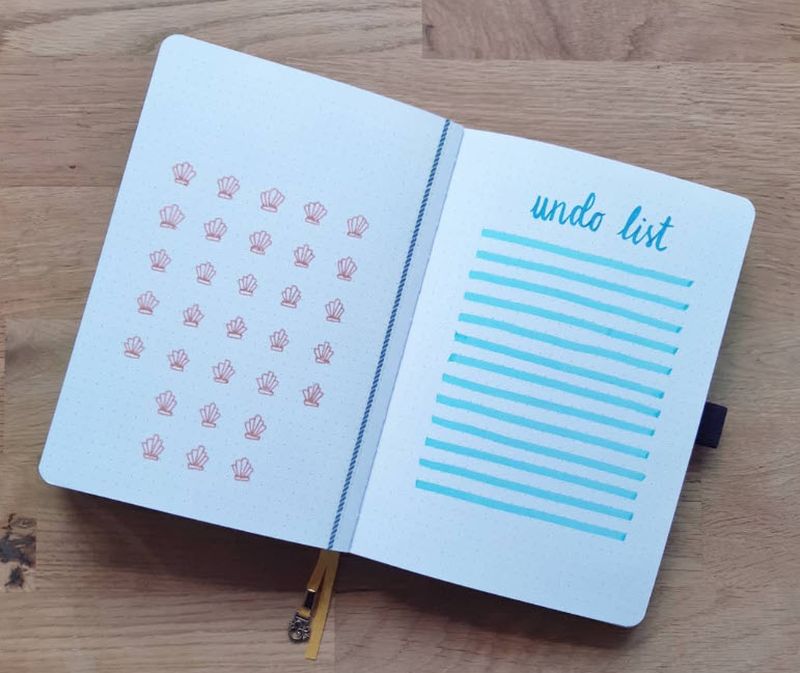 undo list